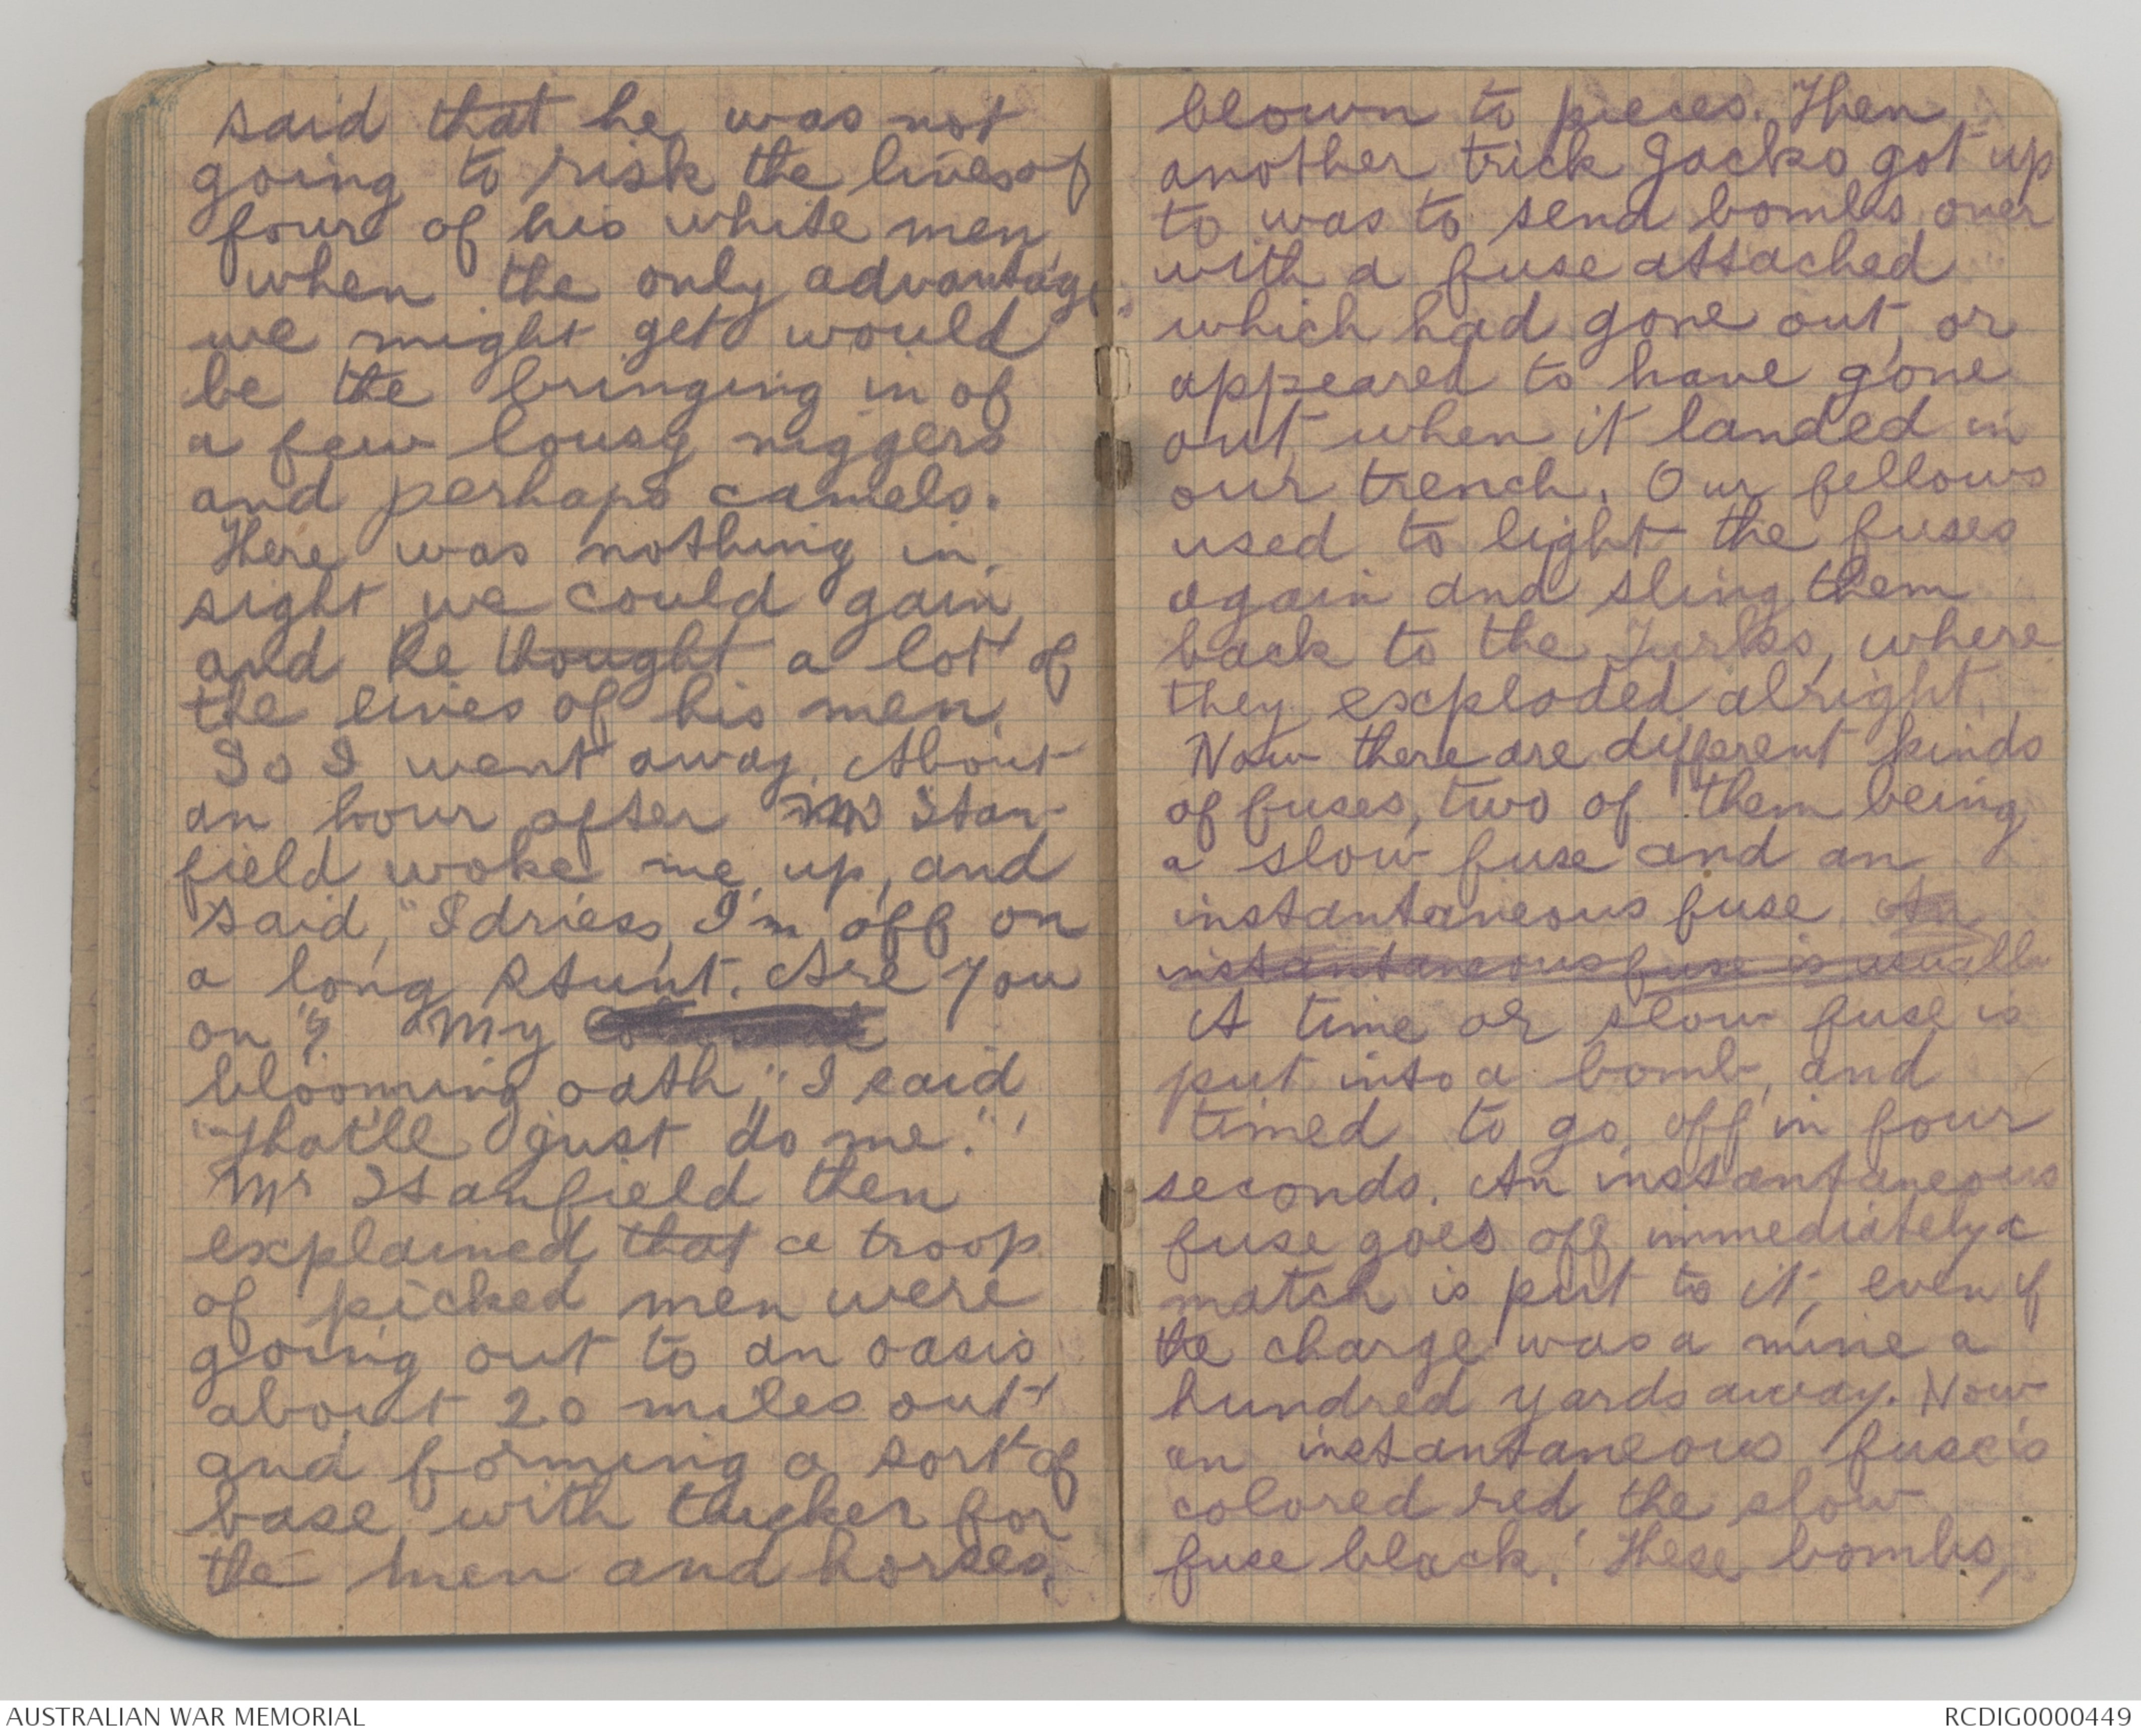 said that he was not
going to risk the lives of
four of his white men,
when the only advantage
we might get would
be the bringing in of
a few lousy niggers
and perhaps camels.
There was nothing in
sight we could gain,
and he thought a lot of
the lives of his men.
So I went away. About
an hour after Mr Stan-
field woke me up, and
said, "Idriess, I'm off on
a long stunt. Are you
on"? "My
blooming oath," I said
"That'll just do me."
Mr Stanfield then
explained that a troop
of picked men were
going out to an oasis
about 20 miles out
and forming a sort of
base with tucker for
the men and horses,
blown to pieces. Then
another trick Jacko got up
to was to send bombs over
with a fuse attached
which had gone out, or
appeared to have gone
out when it landed in
our trench. Our fellows
used to light the fuses
again and sling them
back to the Turks, where
they exploded alright.
Now there are different kinds
of fuses, two of them being
a slow fuse and an
instantaneous fuse. An
instantaneous fuse is usually
A time or slow fuse is
put into a bomb, and
timed to go off in four
seconds. An instantaneous
fuse goes off immediately a
match is put to it, even if
the charge was a mine a
hundred yards away. Now
an instantaneous fuse is
colored red, the slow
fuse black. These bombs,
AUSTRALIAN WAR MEMORIAL
RCDIG0000449